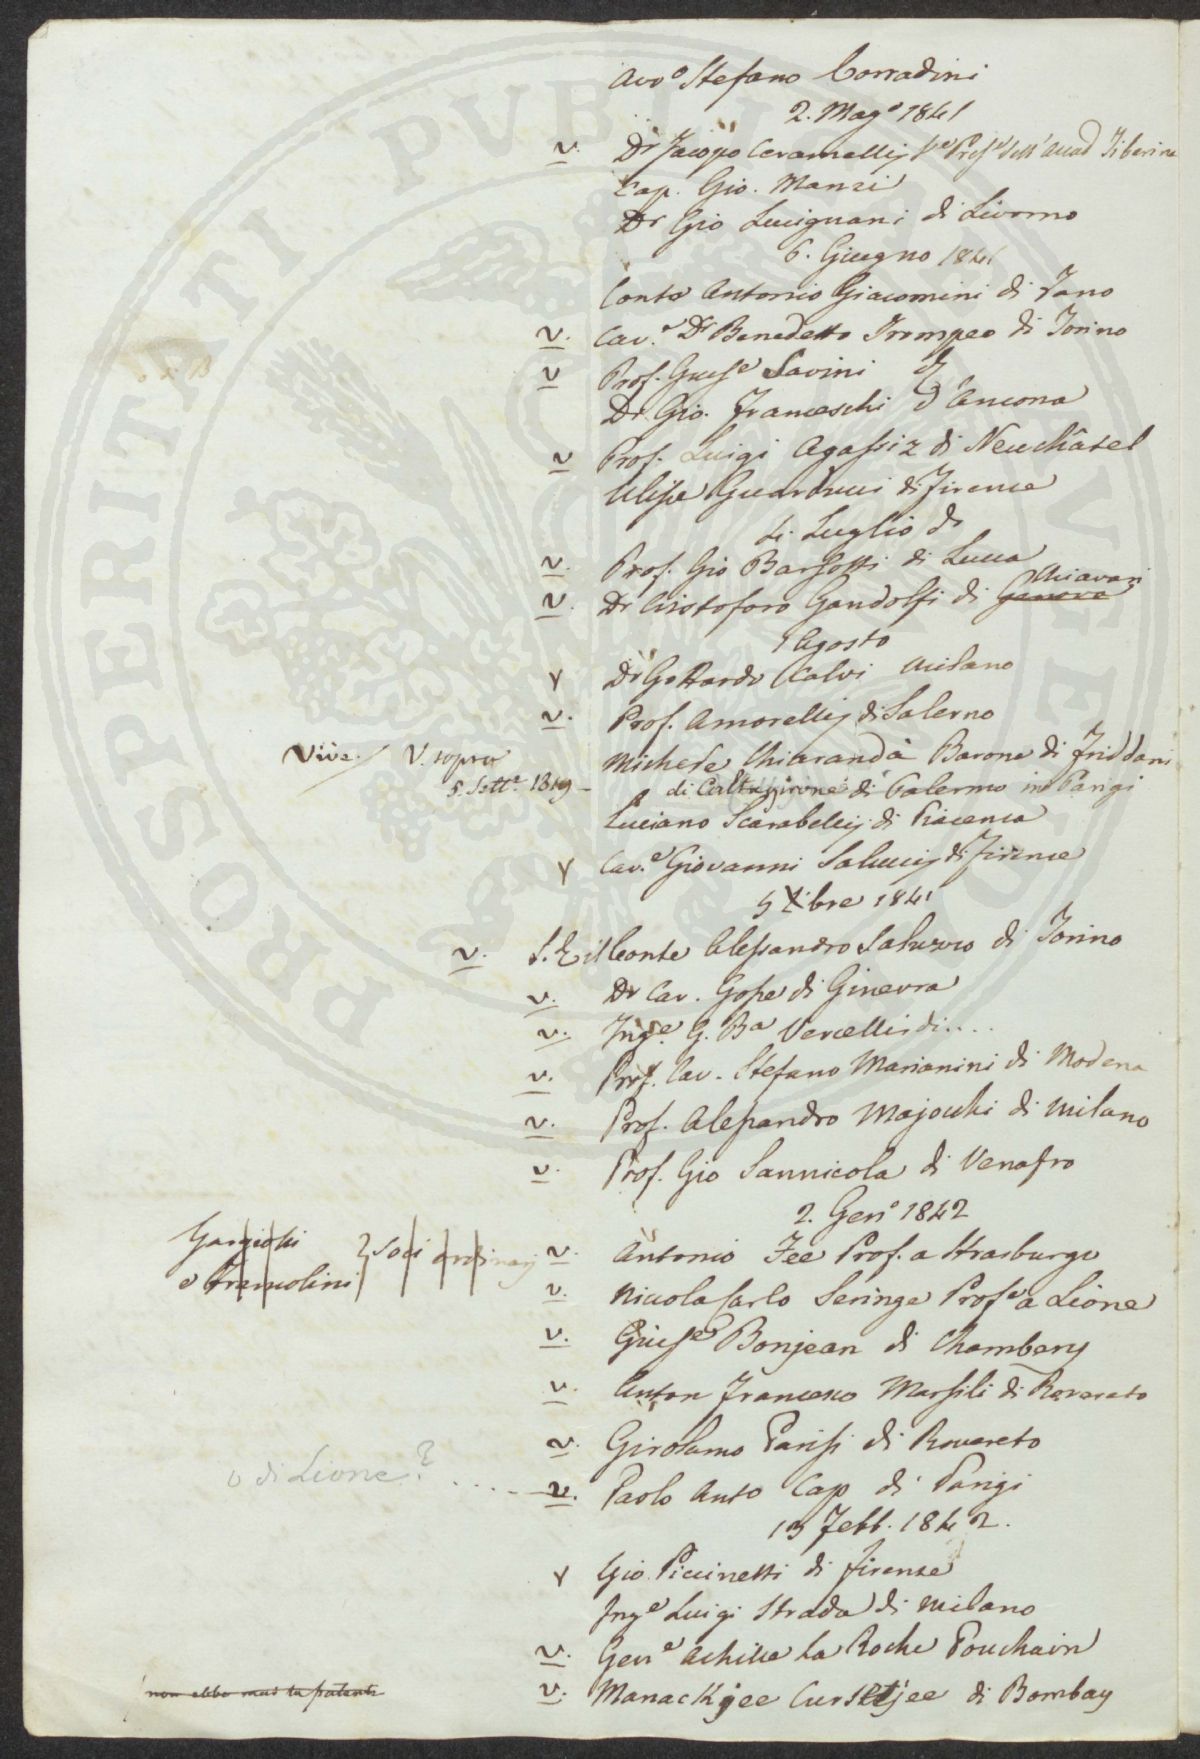 Avv.o Stefano Corradini
2. Mag.o 1841
v. Dr Jacopo Ceramellij Seg.e Prof.e dell' Accad Tiberina
Cap. Gio. Manzi
Dr Gio Lucignani di Livorno
6. Giugno 1841
Conte Antonio Giacomini di Fano
v. Cav.e Dr Benedetto Trompeo di Torino
v Prof. Gius.e Savini di
Dr Gio. Franceschi d'Ancona
v Prof. Luigi Agassiz di Neuchâtel
Ulisse Guarducci di Firenze
4. Luglio do
v. Prof. Gio Barsotti di Lucca
v. Dr Cristoforo Gandolfi di Genova Chiavari
1 Agosto
v Dr Gottardo Calvi Milano
v. Prof. Amorellij di Salerno
Vive. V. sopra Michele Chiarandà Barone di Friddani
5. Sett.e 1819 - di Caltagirone di Palermo in Parigi
Luciano Scarabellij di Piacenza
v Cav.e Giovanni Saluccij di Firenze
5 Xbre 1841
v. S. E il Conte Alessandro Saluzzo di Torino
v. Dr Cav. Gosse di Ginevra
v. Ing.e G. Ba Vercellis di....
v. Prof. Cav. Stefano Marianini di Modena
v. Prof. Alessandro Majocchi di Milano
v. Prof. Gio Sannicola di Venafro
2. Gen.o 1842
Gargiolli
e Tremolini } Soci ordinarj
v. Antonio Fee Prof. a Strasburgo
v. Nicola Carlo Seringe Prof.e a Lione
v. Gius.e Bonjean di Chambery
v. Anton Francesco Marsili di Rovereto
v. Girolamo Parisi di Rovereto
o di Lione? .... v. Paolo Anto Cap di Parigi
13 Febb. 1842.
v Gio. Piccinetti di Firenze
Ing.e Luigi Strada di Milano
v. Gen.e Achille la Roche Pouchain
non ebbe mai la patente v. Manackjee Cursetjee di Bombay
PROSPERITATI PUBLICAE